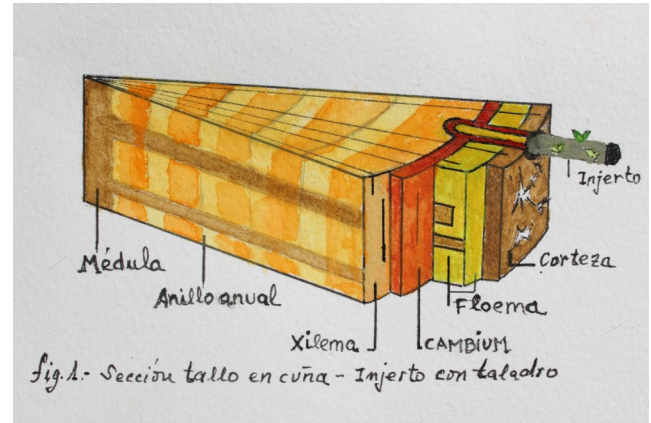 Injerto
Corteza
Médula
Anillo anual
Floema
Xilema
CAMBIUM
fig.1.- Sección tallo en cuña - Injerto con taladro